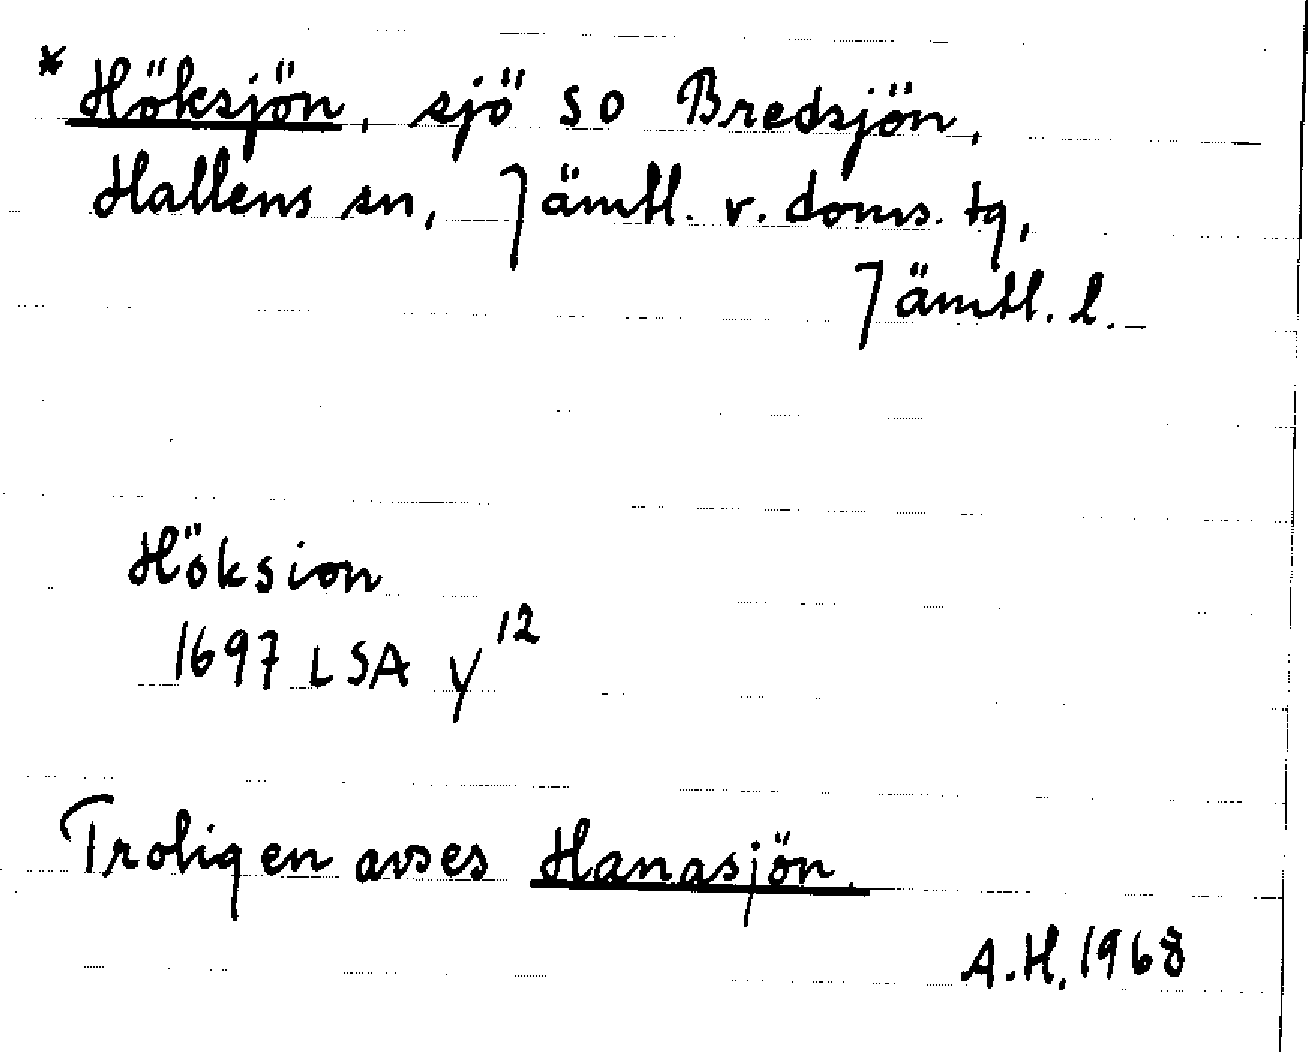 * Höksjön, sjö SO Bredsjön,
Hallens sn, Jämtl. v. doms. tg,
Jämtl. l.
Höksion
1697 LSA Y 12
Troligen avses Hanasjön.
A.H. 1968